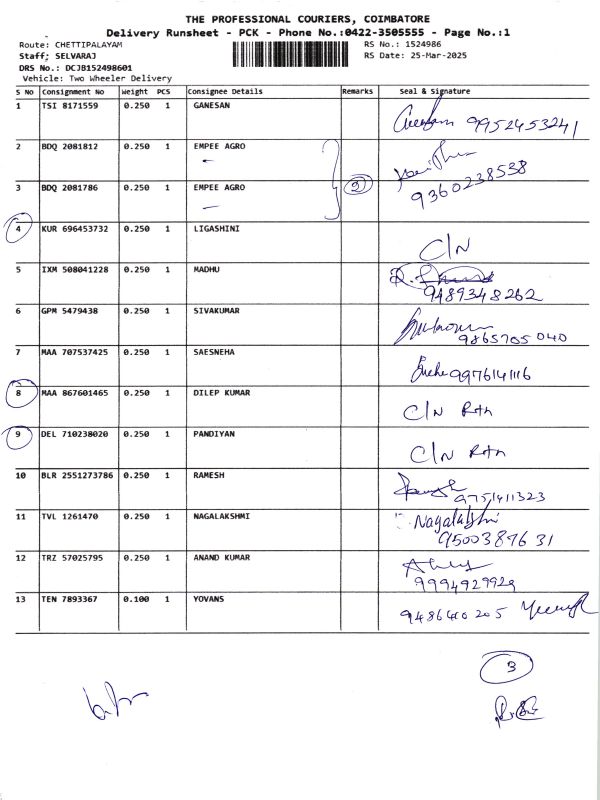 THE PROFESSIONAL COURIERS, COIMBATORE
Delivery Runsheet - PCK - Phone No.:0422-3505555 - Page No.:1
Route: CHETTIPALAYAM RS No.: 1524986
Staff: SELVARAJ RS Date: 25-Mar-2025
DRS No.: DCJB152498601
Vehicle: Two Wheeler Delivery
S No Consignment No Weight PCS Consignee Details Remarks Seal & Signature
1 TSI 8171559 0.250 1 GANESAN
9952453241
2 BDQ 2081812 0.250 1 EMPEE AGRO
3 BDQ 2081786 0.250 1 EMPEE AGRO 2
9360238538
4 KUR 696453732 0.250 1 LIGASHINI
C/N
5 IXM 508041228 0.250 1 MADHU
9489348262
6 GPM 5479438 0.250 1 SIVAKUMAR
9865705040
7 MAA 707537425 0.250 1 SAESNEHA
9976141116
8 MAA 867601465 0.250 1 DILEP KUMAR
C/N Rtn
9 DEL 710238020 0.250 1 PANDIYAN
C/N Rtn
10 BLR 2551273786 0.250 1 RAMESH
9751411323
11 TVL 1261470 0.250 1 NAGALAKSHMI
Nagalakshmi
9500389631
12 TRZ 57025795 0.250 1 ANAND KUMAR
9994929929
13 TEN 7893367 0.100 1 YOVANS
9486410205
3